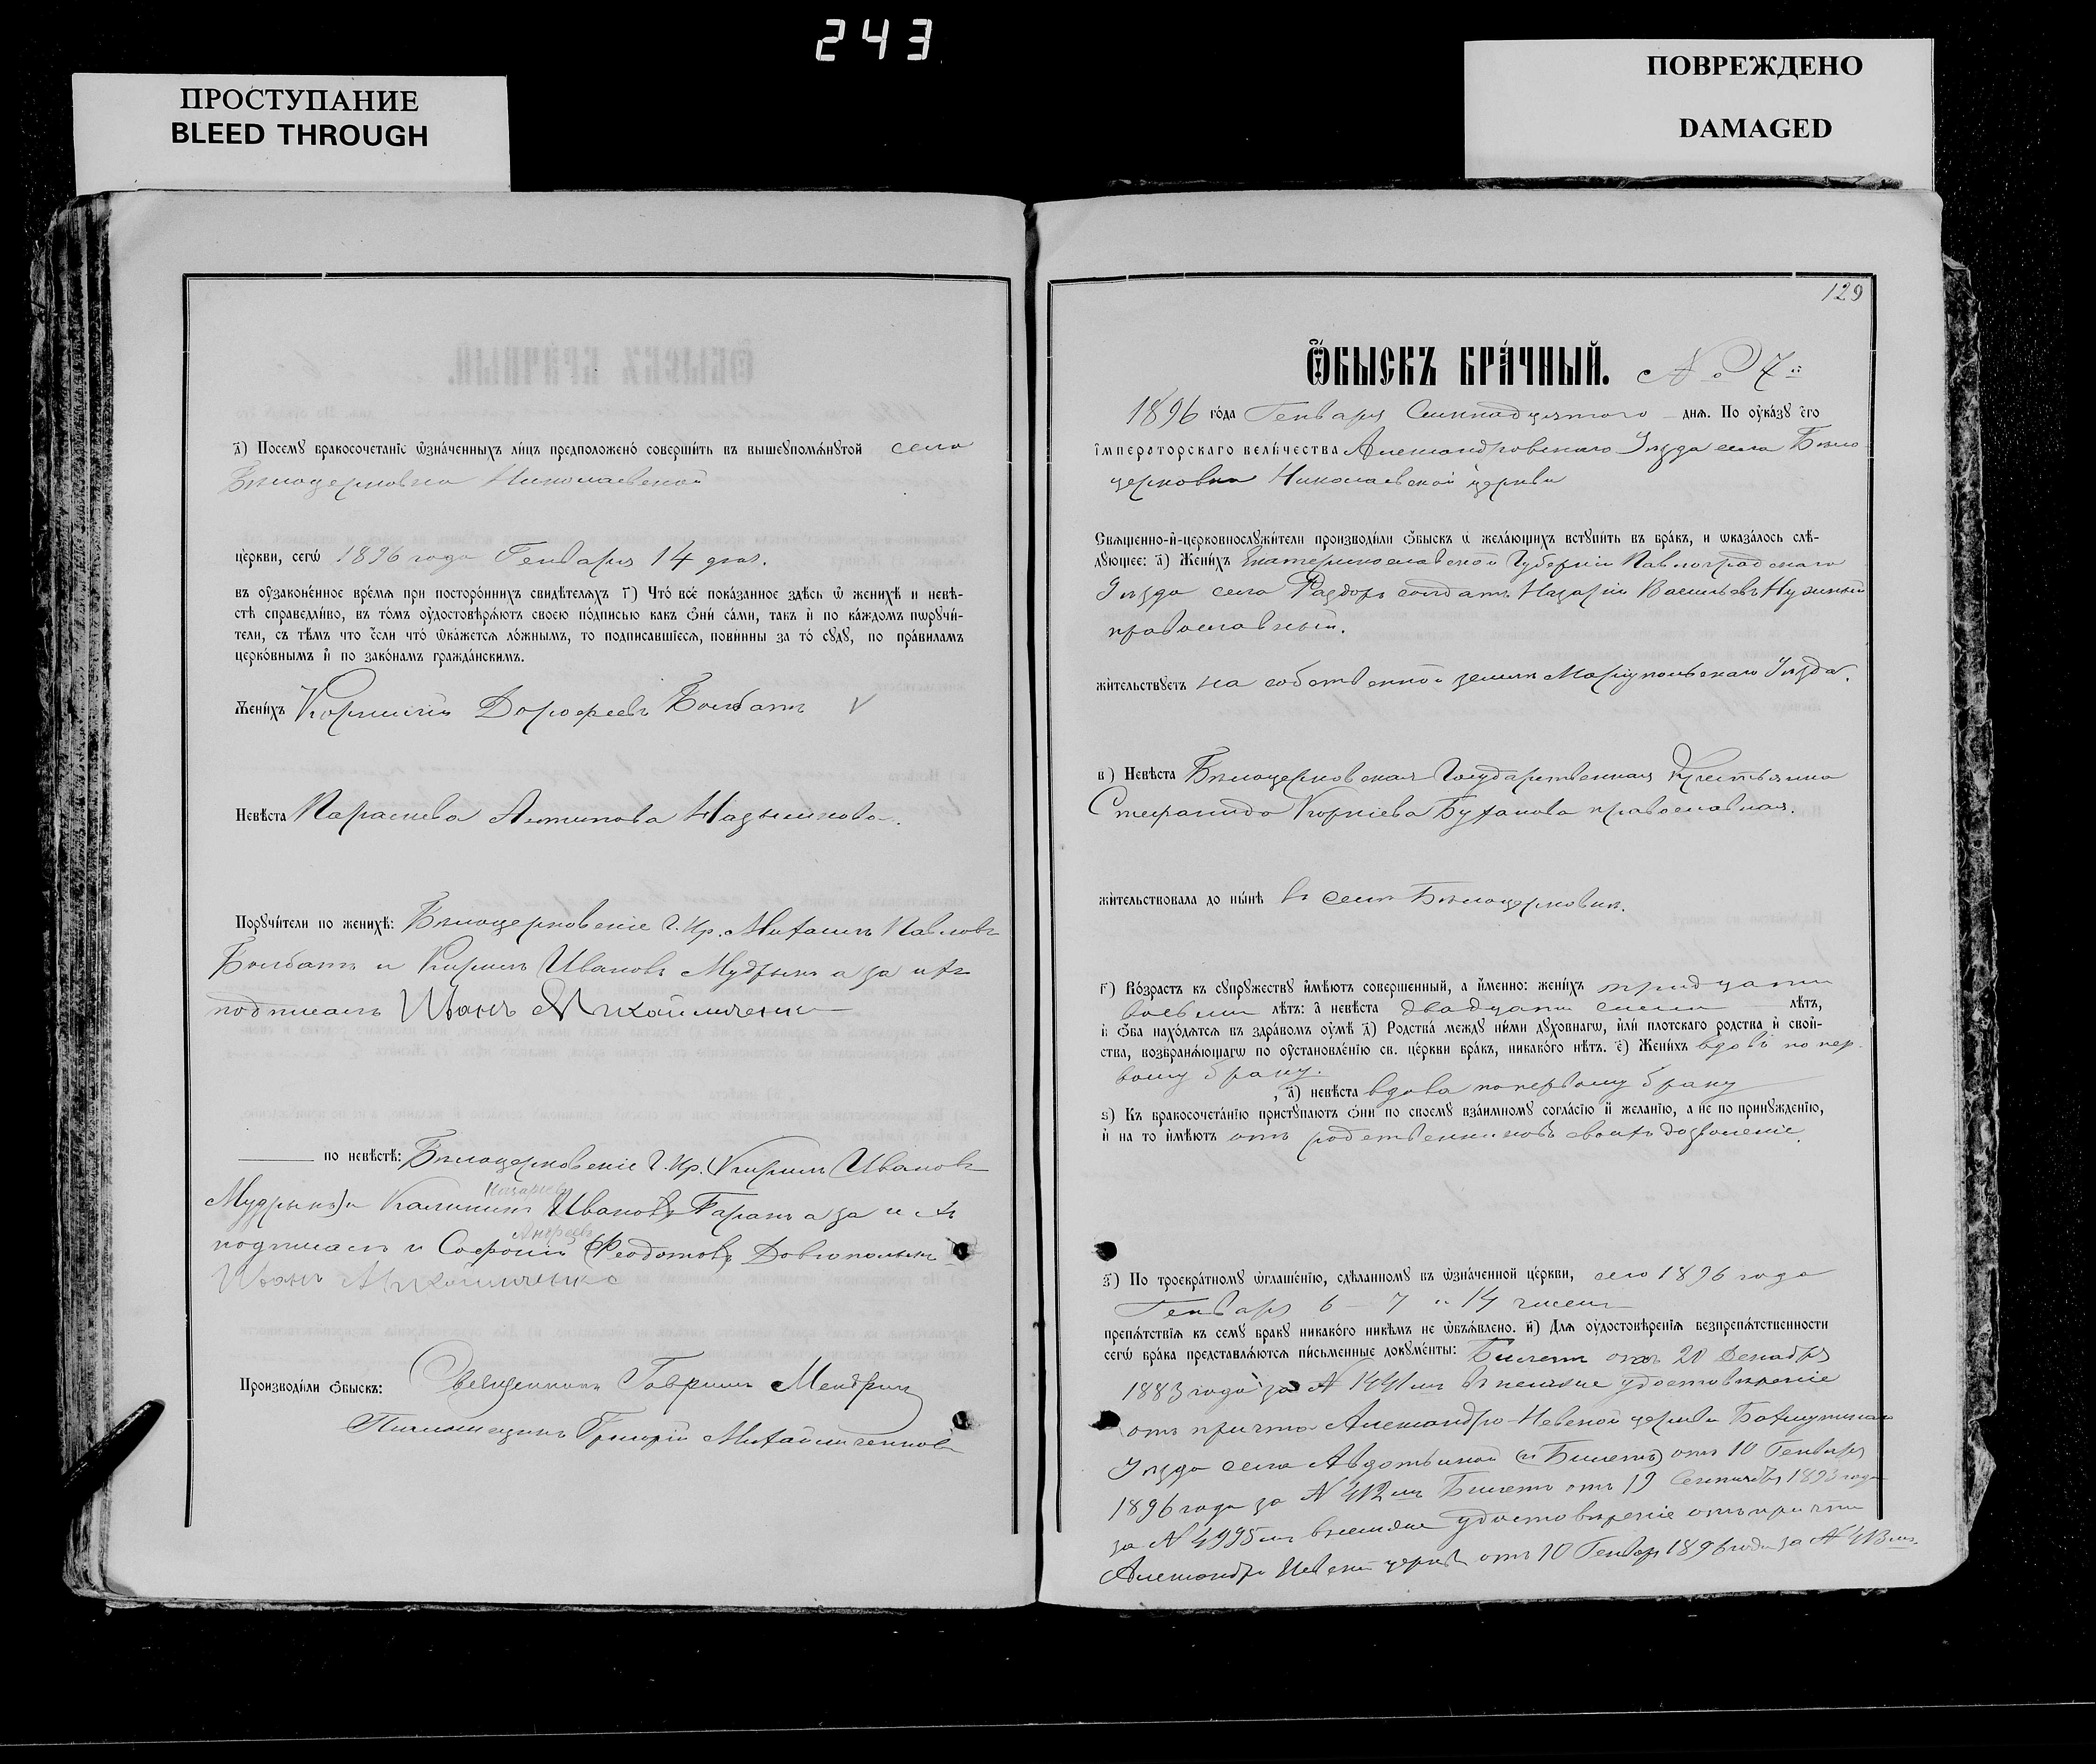 243
ПРОСТУПАНИЕ
BLEED THROUGH
ПОВРЕЖДЕНО
DAMAGED
д҃і) Посемꙋ бракосочетанїе ѡзна́ченныхъ ли́цъ предположено̀ соверши́ть въ вышеꙋпомѧ́нꙋтой села
Бѣлоцерковки Николаевской
це́ркви, сегѡ̀ 1896 года Генваря 14 дня.
въ оу҆зако́ненное вре́мѧ при посторо́ннихъ свидѣ́телѧхъ г҃і) Что́ всѐ пока́занное здѣ́сь ѡ женихѣ̀ и невѣ́-
стѣ справедли́во, въ то́мъ оу҆достовѣрѧ́ютъ свое́ю по́дписью какъ ѻ҆нѝ са́ми, такъ и҆ по ка́ждомъ порꙋчи́-
тели, съ тѣ́мъ что е҆́сли что́ ѡка́жетсѧ ло́жнымъ, то подписавшїесѧ, пови́нны за то́ сꙋдꙋ̀, по пра́виламъ
церко́внымъ и҆ по зако́намъ гражда́нскимъ.
Жени́хъ Корнилій Дорофеевъ Болбатъ V
Невѣ́ста Параскева Антипова Надычкова.
Порꙋчи́тели по женихѣ̀: Бѣлоцерковскіе Г. Кр. Михаилъ Павловъ
Болбатъ и Кирилъ Ивановъ Мудрыкъ а за ихъ
подписалъ Иванъ Михайличенко
по невѣ́стѣ: Бѣлоцерковскіе Г. Кр. Кирилъ Ивановъ
Назаріевъ
Мудрыкъ и Калиникъ (Ивановъ) Баранъ а за ихъ
Андреевъ
подписалъ и Софоній (Феодотовъ) Довгополыкъ
Иванъ Михайличенко
Производи́ли ѻ҆́быскъ: Священникъ Гавриилъ Мендрин
Псаломщикъ Григорій Михайличенковъ
129
Ѻ҆́БЫСКЪ БРА́ЧНЫЙ. № 7й
1896 го́да Генваря Семнадцятого днѧ. По оу҆ка́зꙋ є҆гѡ̀
і҆мператорскаго вели́чества Александровскаго Уѣзда села Бѣло
церковки Николаевской церкви
Свѧще́нно-и҆-церковнослꙋжи́тели производи́ли ѻ҆́быскъ ѡ҆ жела́ющихъ встꙋпи́ть въ бра́къ, и ѡказа́лось слѣ́-
дꙋющее: а҃) Жени́хъ Екатеринославской Губерніи Павлоградскаго
Уѣзда села Раздоръ солдатъ Назарій Васильевъ Нужный
православный.
жи́тельствꙋетъ на собственной землѣ Маріупольскаго Уѣзда.
в҃) Невѣ́ста Бѣлоцерковская Государственная Крестьянка
Стефанида Корніева Буханова православная.
жи́тельствовала до ны́нѣ въ селѣ Бѣлоцерковкѣ.
г҃) Во́зрастъ къ сꙋпрꙋжествꙋ и҆мѣ́ютъ соверше́нный, а и҆́менно: жени́хъ тридцати
восьми лѣ́тъ: а҆ невѣ́ста двадцати семи лѣ́тъ,
и҆ ѻ҆́ба нахо́дѧтсѧ въ здра́вомъ оу҆мѣ̀ д҃) Родства̀ междꙋ ни́ми дꙋхо́внагѡ, и҆лѝ пло́тскаго родства̀ и҆ свой-
ства̀, возбранѧ́ющагѡ по оу҆становле́нїю св. це́ркви бра́къ, никако́го нѣ́тъ. е҃) Жени́хъ вдовъ по пер
вому браку.
, а҃) невѣ́ста вдова по первому браку
ѕ҃) Къ бракосочета́нїю пристꙋпа́ютъ ѻ҆нѝ по своемꙋ̀ взаи́мномꙋ согла́сїю и҆ жела́нїю, а не по принꙋжде́нїю,
и҆ на то̀ и҆мѣ́ютъ отъ родственниковъ своихъ дозволеніе.
з҃) По троекра́тномꙋ ѡ҆глаше́нїю, сдѣ́ланномꙋ въ ѡ҆зна́ченной це́ркви, сего 1896 года
Генваря 6 – 7 и 14 чиселъ
препѧ́тствїѧ къ семꙋ̀ бра́кꙋ никако́го никѣ́мъ не ѡ҆бъѧ́влено. и҃) Длѧ оу҆достовѣ́ренїѧ безпрепѧ́тственности
сегѡ̀ бра́ка представлѧ́ютсѧ пи́сьменные докꙋме́нты: Билетъ отъ 20 Декабря
1883 года за № 1441мъ внемже удостовѣреніе
отъ причта Александро-Невской церкви Бахмутскаго
Уѣзда села Авдотьиной (и Билетъ) отъ 10 Генваря
1896 года за № 412мъ Билетъ отъ 19 Сентября 1893 года
за № 4995мъ внемже удостовѣреніе отъ причта
Александро Невской церкви отъ 10 Генвар 1896 года за № 413мъ.